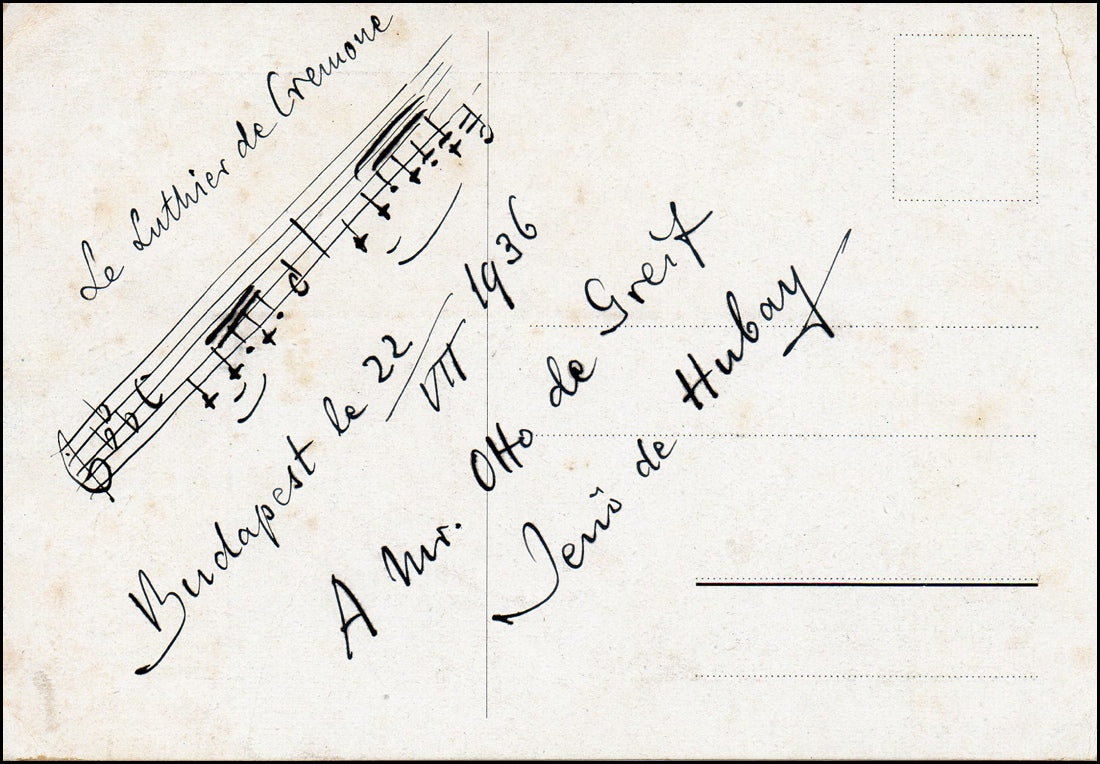 Le Luthier de Cremone
Budapest le 22/VII 1936
A Mr. Otto de Greiff
Jenő de Hubay